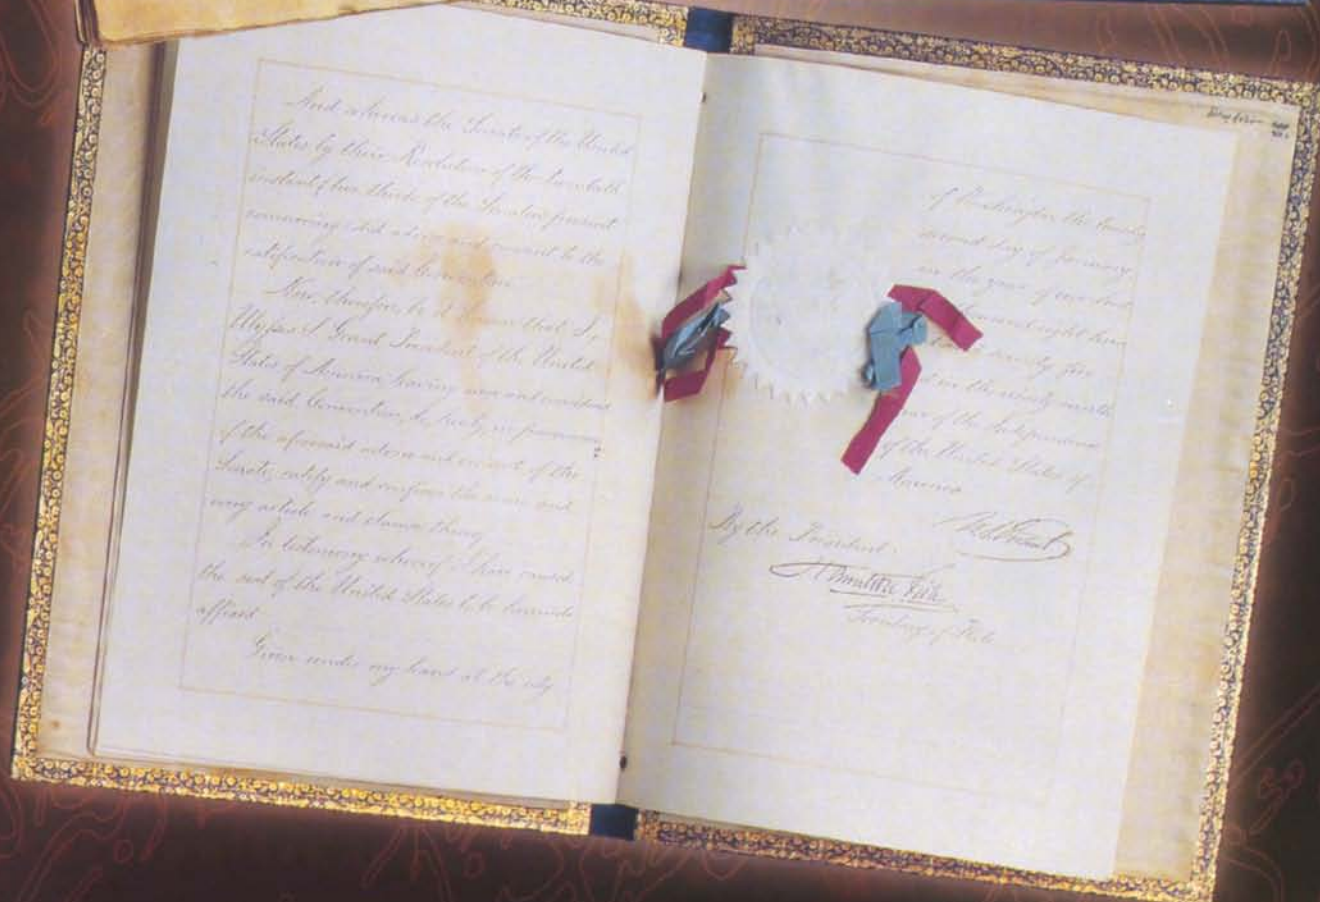 And whereas the Senate of the United
States by their Resolution of the twentieth
instant (two thirds of the Senators present
concurring) did advise and consent to the
ratification of said Convention
Now, therefore, be it known that I,
Ulysses S. Grant President of the United
States of America having seen and considered
the said Convention, do, hereby, in pursuance
of the aforesaid advice and consent of the
Senate, ratify and confirm the same and
every article and clause thereof
In testimony whereof I have caused
the seal of the United States to be hereunto
affixed
Given under my hand at the city
of Washington the twenty
second day of January
in the year of our Lord
thousand eight hun
seventy five
in the ninety ninth
of the Independence
of the United States of
America
U. S. Grant
By the President:
Hamilton Fish
Secretary of State